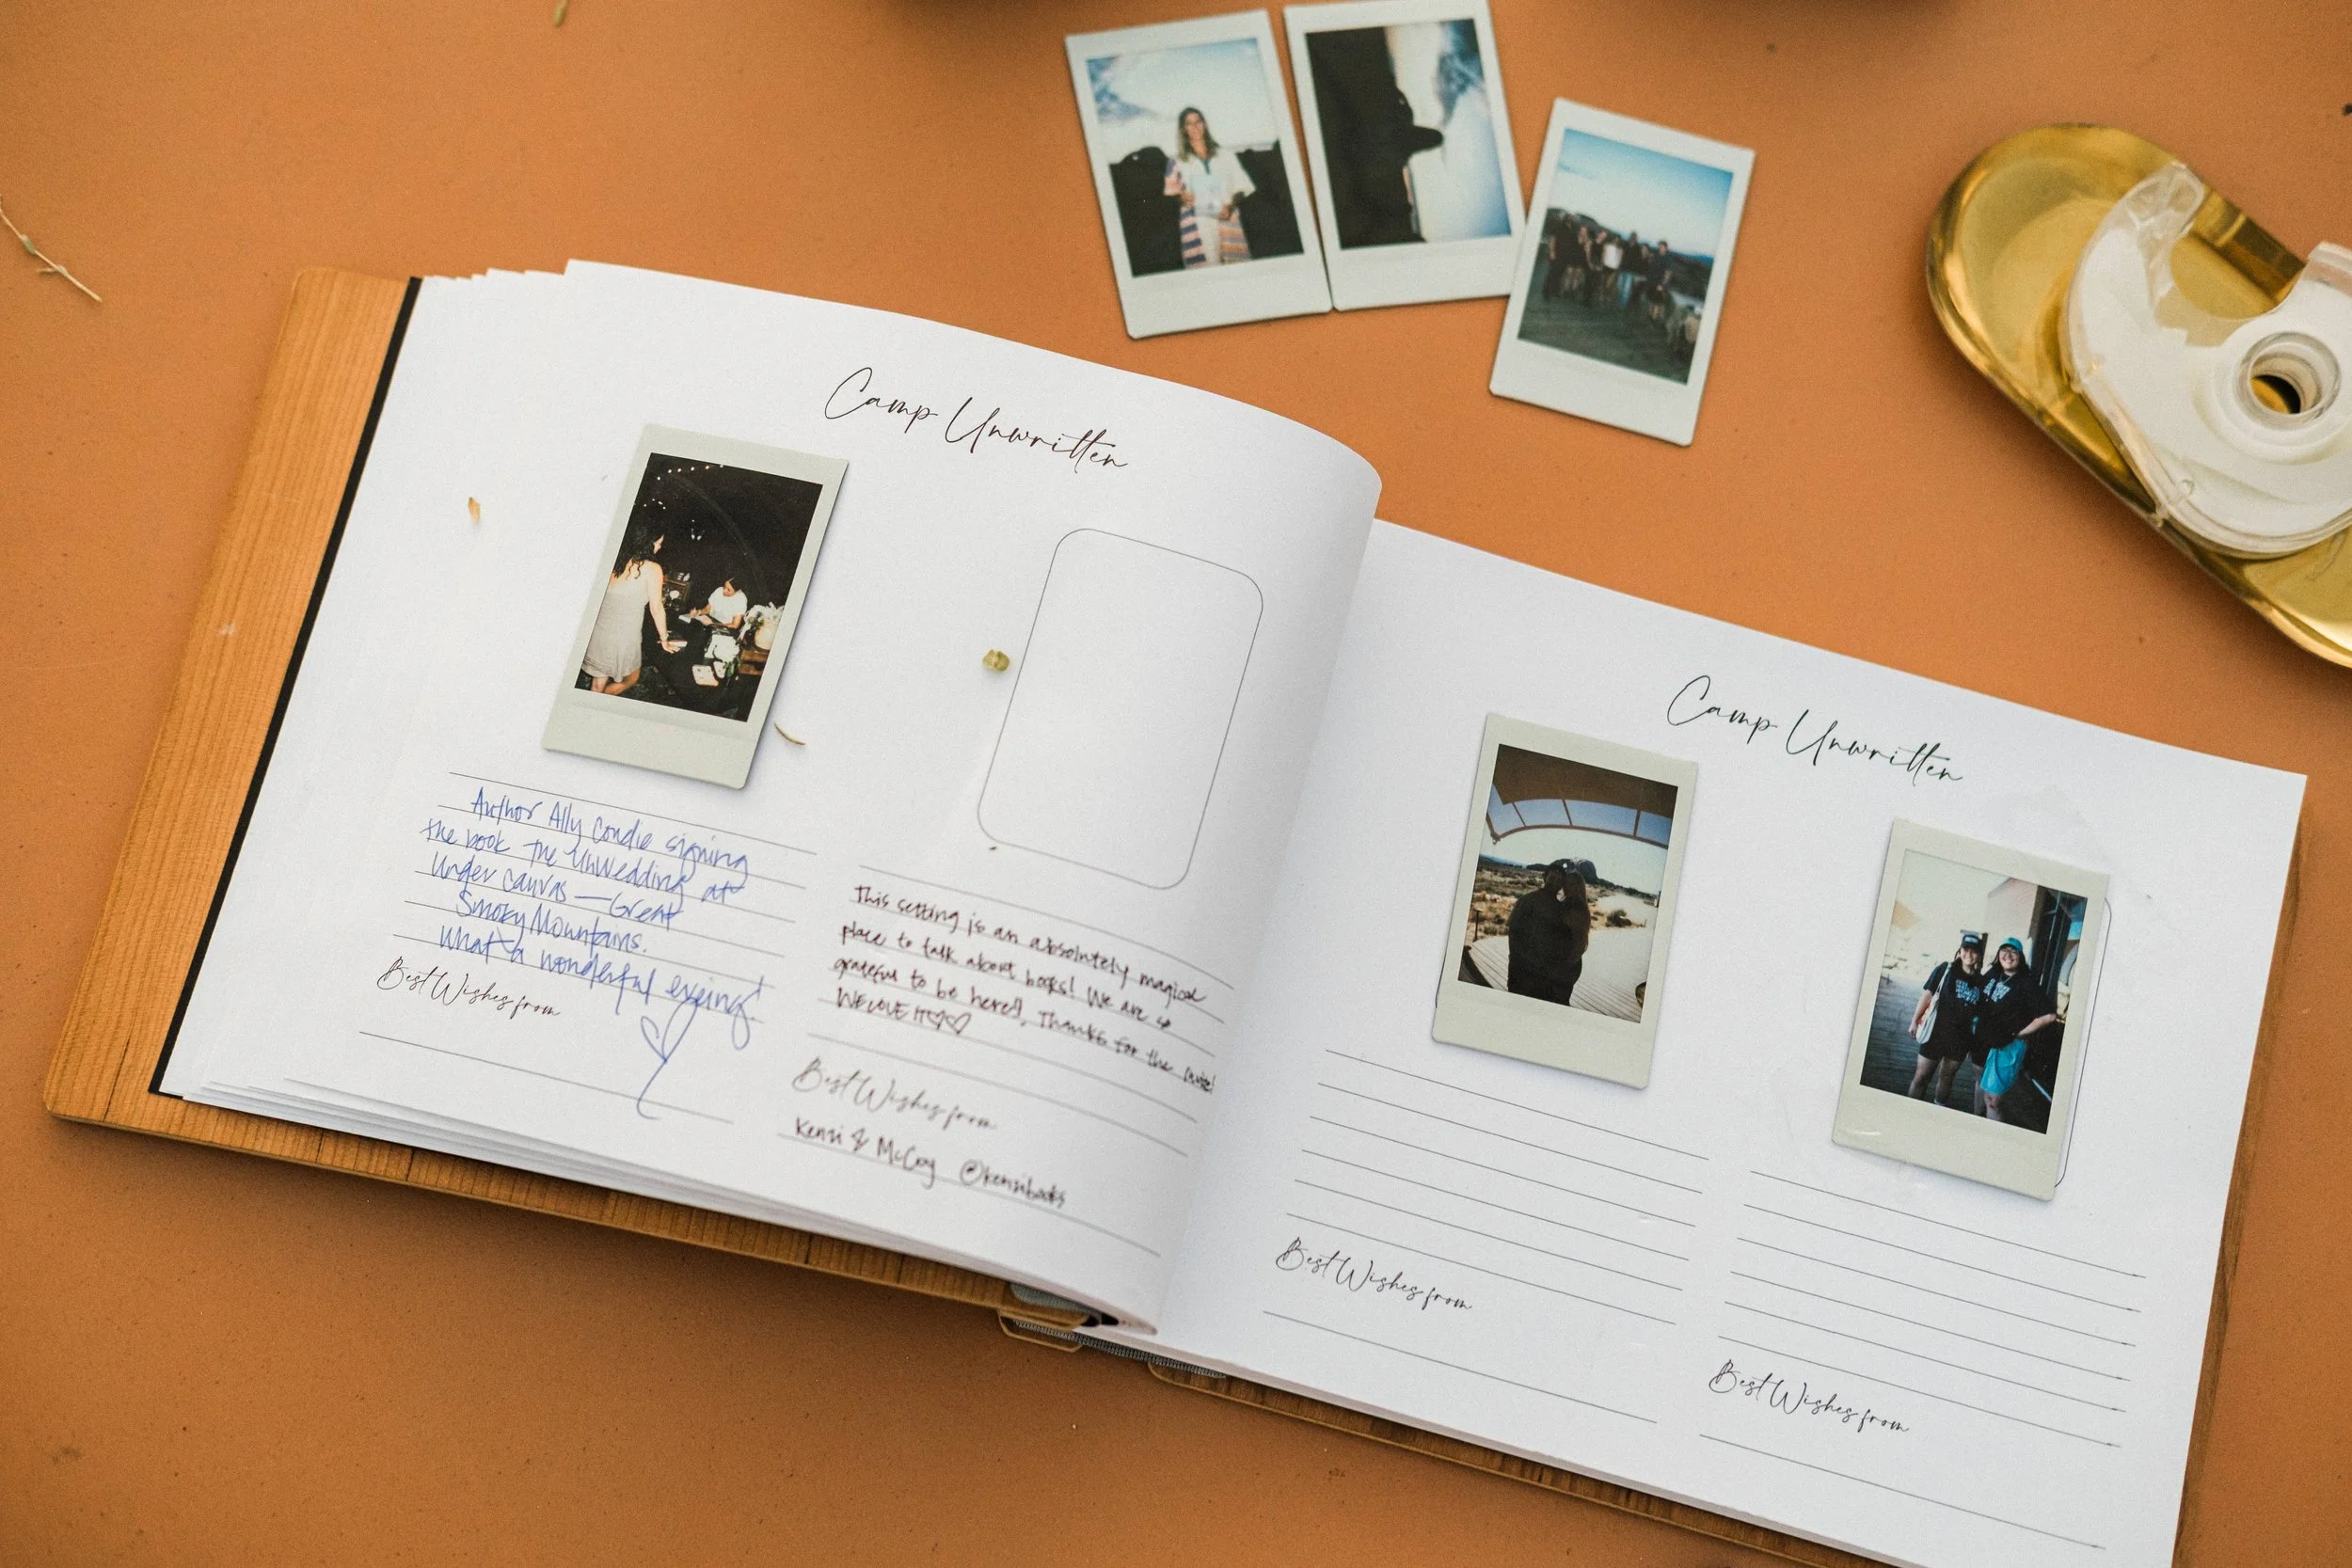 Camp Unwritten
Author Ally Condie signing
the book The UnWedding at
Under Canvas — Great
Smoky Mountains.
What a wonderful evening!
Best Wishes from
This setting is an absolutely magical
place to talk about books! We are so
grateful to be here!! Thanks for the invite!
WE LOVE IT♡♡
Best Wishes from
Kenzi & McCoy @kenzibooks
Camp Unwritten
Best Wishes from
Best Wishes from